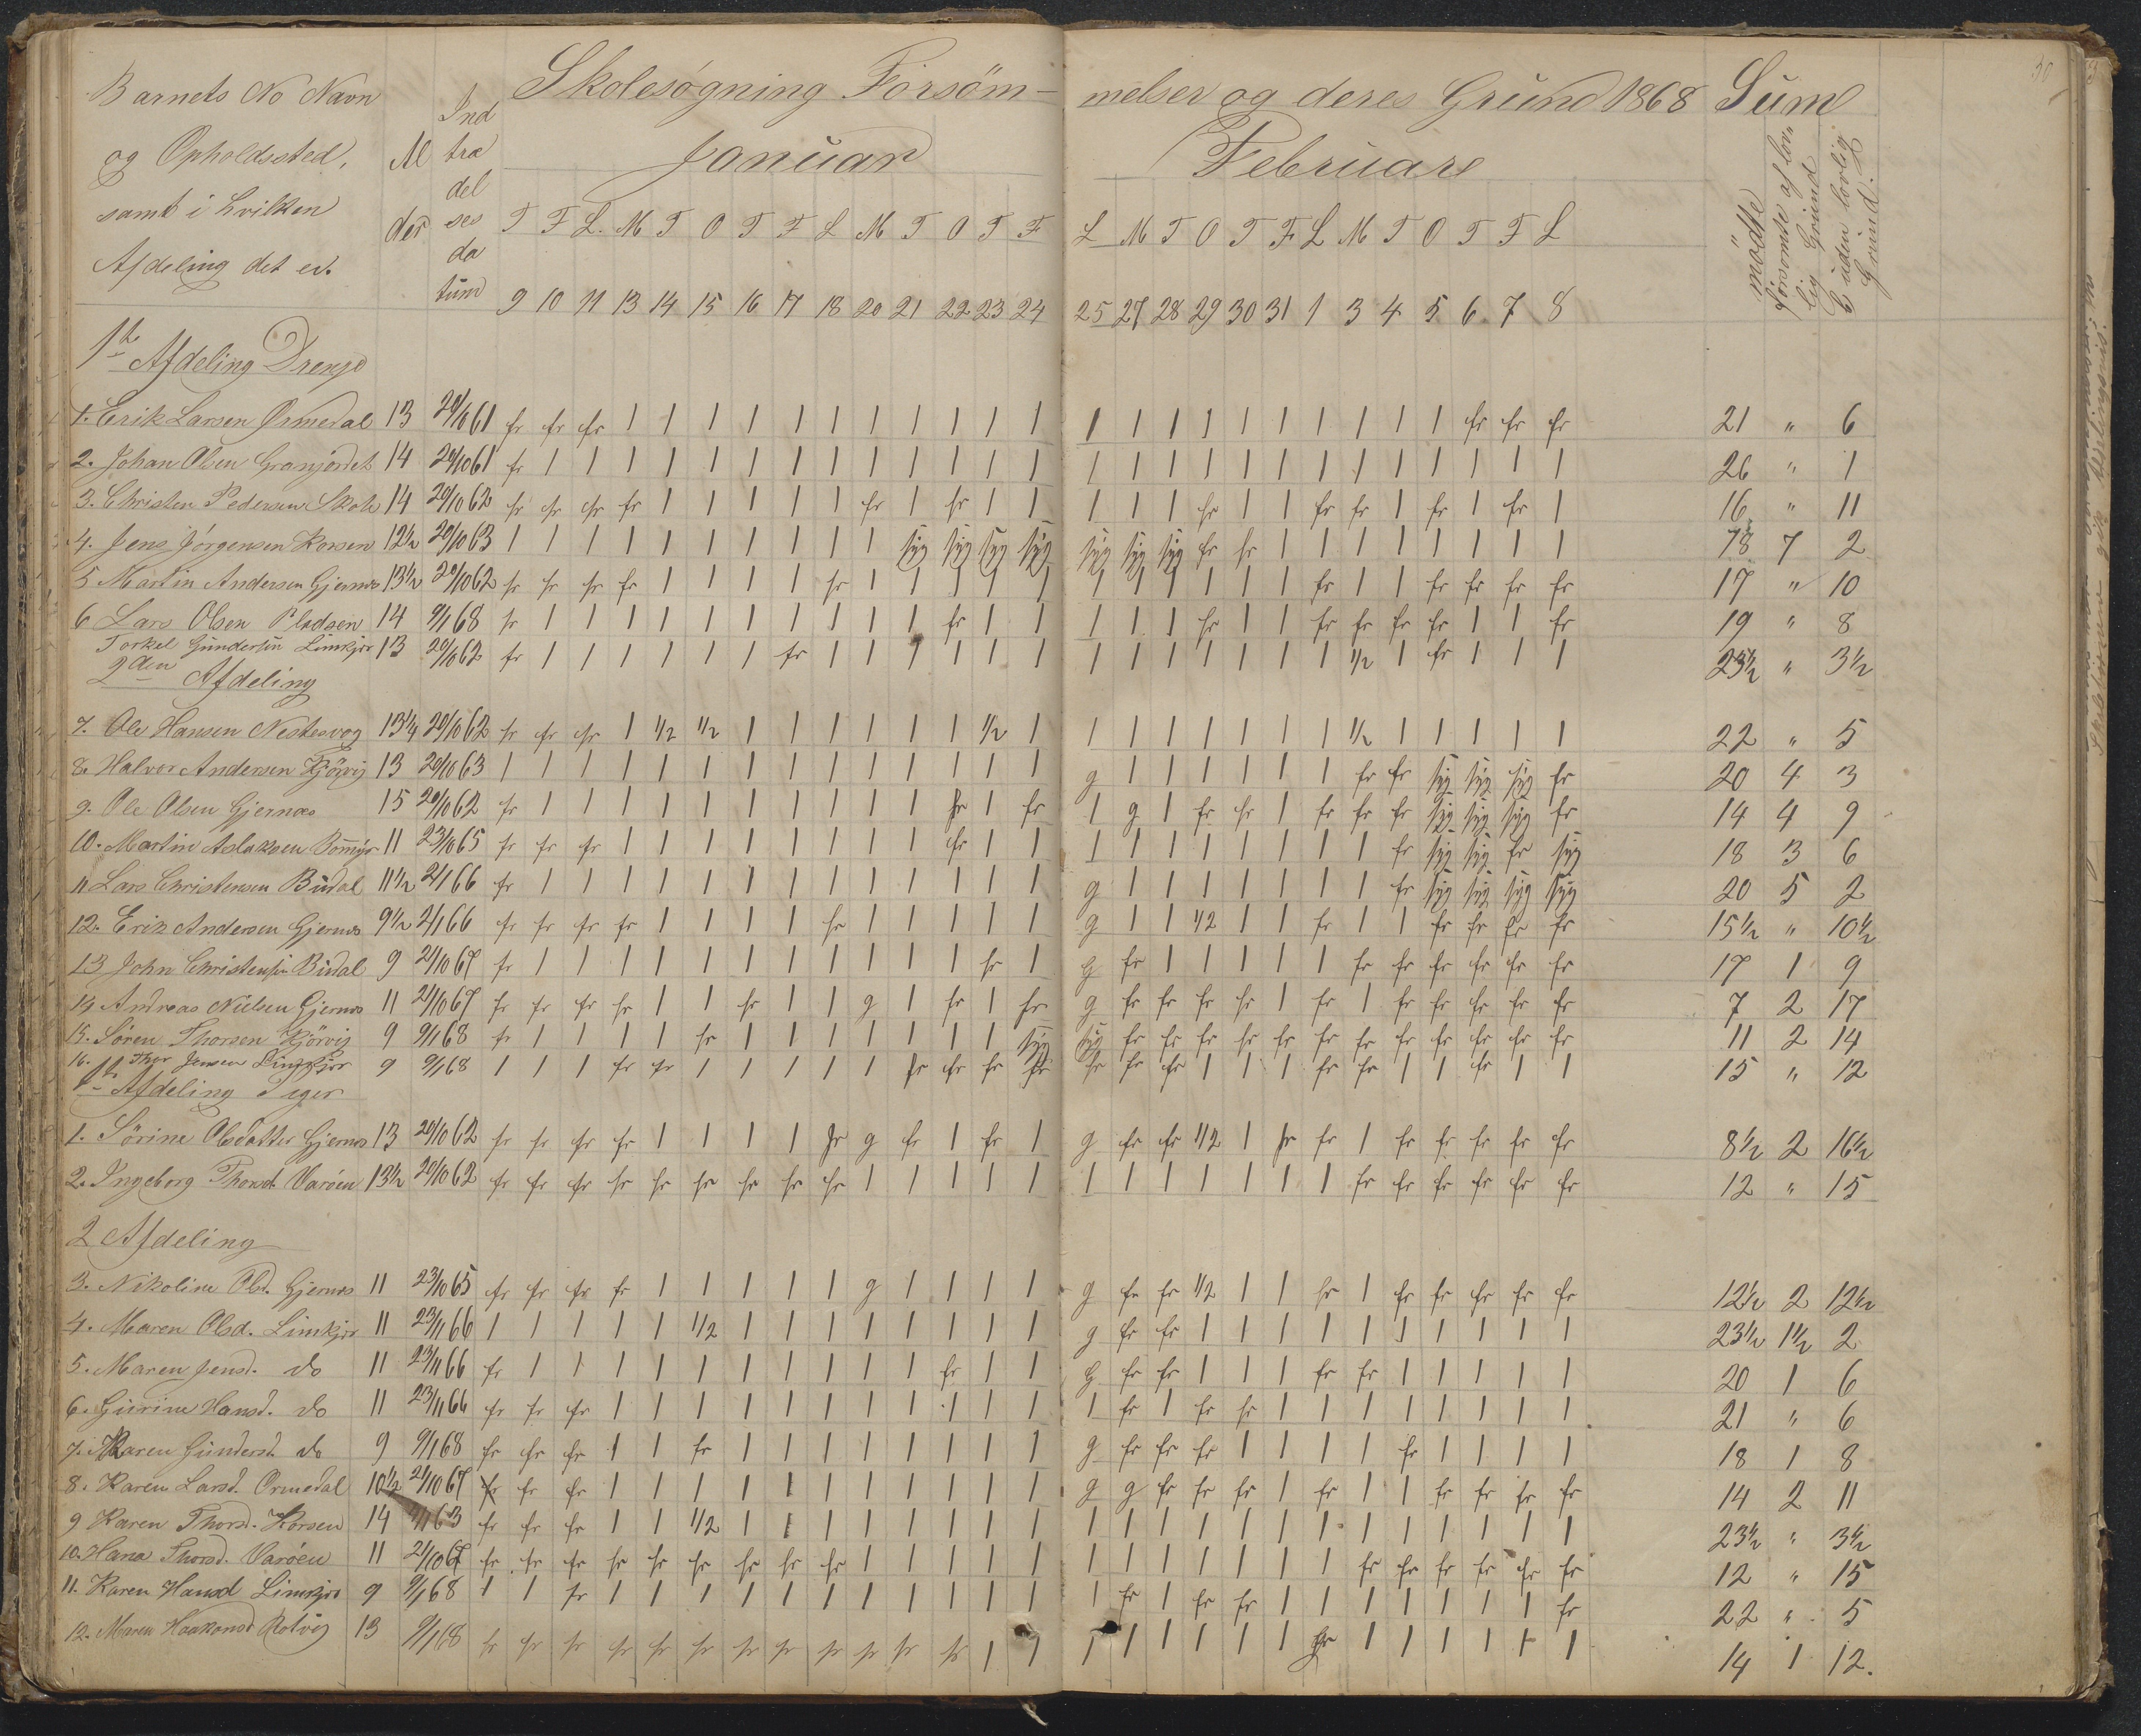 Skolesøgning Forsöm- melser og deres Grund 1868 Sum
Barnets No Navn
og Opholdssted,
samt i hvilken
Afdeling det er.
Al der
Ind træ del ses da tum
Januar
Februare
mödte
forsomte af lov- lig Grund
D uden lovlig Grund.
T F L. M T O T F L M T O T F L M T O T F L M T O T F L
9 10 11 13 14 15 16 17 18 20 21 22 23 24 25 27 28 29 30 31 1 3 4 5 6 7 8
1ste Afdeling Drenge
1. Erik Larsen Ormedal 13 20/10 61 fr fr fr 1 1 1 1 1 1 1 1 1 1 1 1 1 1 1 1 1 1 1 1 1 fr fr fr 21 " 6
2. Johan Olsen Granjordet 14 20/10 61 fr 1 1 1 1 1 1 1 1 1 1 1 1 1 1 1 1 1 1 1 1 1 1 1 1 1 1 26 " 1
3. Christen Pedersen 14 20/10 62 fr fr fr fr 1 1 1 1 1 fr 1 fr 1 1 1 1 1 fr 1 1 fr fr 1 fr 1 fr 1 16 " 11
4. Jens Jörgensen Korsen 12½ 20/10 63 1 1 1 1 1 1 1 1 1 1 syg syg syg syg syg syg syg fr fr 1 1 1 1 1 1 1 1 18 7 2
5 Martin Andersen Gjernes 13½ 20/10 62 fr fr fr fr 1 1 1 1 fr 1 1 1 1 1 1 1 1 1 1 1 fr 1 1 fr fr fr fr 17 " 10
6 Lars Olsen Pladsen 14 9/1 68 fr 1 1 1 1 1 1 1 1 1 1 fr 1 1 1 1 1 fr 1 1 fr fr fr fr 1 1 fr 19 " 8
Torkel Gundersen Limkjær 13 20/10 62 fr 1 1 1 1 1 1 fr 1 1 1 1 1 1 1 1 1 1 1 1 1 1/2 1 fr 1 1 1 23½ " 3½
2den Afdeling
7. Ole Hansen Nestesvog 13¼ 20/10 62 fr fr fr 1 1/2 1/2 1 1 1 1 1 1 1/2 1 1 1 1 1 1 1 1 1/2 1 1 1 1 1 22 " 5
8. Halvor Andersen Kjörvig 13 20/10 63 1 1 1 1 1 1 1 1 1 1 1 1 1 1 g 1 1 1 1 1 1 fr fr syg syg syg fr 20 4 3
9. Ole Olsen Gjernæs 15 20/10 62 fr 1 1 1 1 1 1 1 1 1 1 fr 1 fr 1 g 1 fr fr 1 fr fr fr syg syg syg fr 14 4 9
10. Martin Aslaksen 11 23/10 65 fr fr fr 1 1 1 1 1 1 1 1 fr 1 1 1 1 1 1 1 1 1 1 fr syg syg fr syg 18 3 6
11 Lars Christensen Büdal 11½ 2/1 66 fr 1 1 1 1 1 1 1 1 1 1 1 1 1 g 1 1 1 1 1 1 1 fr syg syg syg syg 20 5 2
12. Erik Andersen Gjernes 9½ 2/1 66 fr fr fr fr 1 1 1 1 fr 1 1 1 1 1 g 1 1 1/2 1 1 fr 1 1 fr fr fr fr 15½ " 10½
13 John Christensen Büdal 9 21/10 67 fr 1 1 1 1 1 1 1 1 1 1 1 fr 1 g fr 1 1 1 1 1 fr fr fr fr fr fr 17 1 9
14 Andreas Nielsen Gjernes 11 21/10 67 fr fr fr fr 1 1 fr 1 1 g 1 fr 1 fr g fr fr fr fr 1 fr 1 fr fr fr fr fr 7 2 17
15. Søren Thorsen Kjörvig 9 9/1 68 fr 1 1 1 1 fr 1 1 1 1 1 1 1 syg syg fr fr fr fr fr fr fr fr fr fr fr fr 11 2 14
16. Thor Jensen Limkjær 9 9/1 68 1 1 1 fr fr 1 1 1 1 1 fr fr fr fr fr fr fr 1 1 1 fr fr 1 1 fr 1 1 15 " 12
1ste Afdeling Piger
1. Sörine Olsdatter Gjernes 13 20/10 62 fr fr fr fr 1 1 1 1 fr g fr 1 fr 1 g fr fr 1/2 1 fr fr 1 fr fr fr fr fr 8½ 2 16½
2. Ingeborg Thorsd. Varöen 13½ 20/10 62 fr fr fr fr fr fr fr fr fr 1 1 1 1 1 1 1 1 1 1 1 1 fr fr fr fr fr fr 12 " 15
2 Afdeling
3. Nikoline Olsd. Gjernes 11 23/10 65 fr fr fr fr 1 1 1 1 1 g 1 1 1 1 g fr fr 1/2 1 1 fr 1 fr fr fr fr fr 12½ 2 12½
4. Maren Olsd. Limkjær 11 23/11 66 1 1 1 1 1 1/2 1 1 1 1 1 1 1 1 g fr fr 1 1 1 1 1 1 1 1 1 1 23½ 1½ 2
5. Maren Jensd. do 11 23/11 66 fr 1 1 1 1 1 1 1 1 1 1 fr 1 1 g fr fr 1 1 1 fr fr 1 1 1 1 1 20 1 6
6. Gurine Hansd. do 11 23/11 66 fr fr fr 1 1 1 1 1 1 1 1 1 1 1 1 fr 1 fr fr 1 1 1 1 1 1 1 1 21 " 6
7. Karen Gundersd. do 9 9/1 68 fr fr fr 1 1 fr 1 1 1 1 1 1 1 1 g fr fr fr 1 1 1 1 fr 1 1 1 1 18 1 8
8. Karen Larsd. Ormedal 10½ 21/10 67 fr fr fr 1 1 1 1 1 1 1 1 1 1 1 g g fr fr fr 1 fr 1 1 fr fr fr fr 14 2 11
9 Karen Thorsd. Korsen 14 63 fr fr fr 1 1 1/2 1 1 1 1 1 1 1 1 1 1 1 1 1 1 1 1 1 1 1 1 1 23½ " 3½
10. Hana Thorsd. Varöen 11 21/10 67 fr fr fr fr fr fr fr fr fr 1 1 1 1 1 1 1 1 1 1 1 1 fr fr fr fr fr fr 12 " 15
11. Karen Hansd Limkjær 9 9/1 68 1 1 fr 1 1 1 1 1 1 1 1 1 1 1 1 fr 1 fr fr 1 1 1 1 1 1 1 fr 22 " 5
12. Maren Haakonsd Rotvig 13 9/1 68 fr fr fr fr fr fr fr fr fr fr fr fr 1 1 1 1 1 1 1 1 fr 1 1 1 1 1 1 14 1 12.